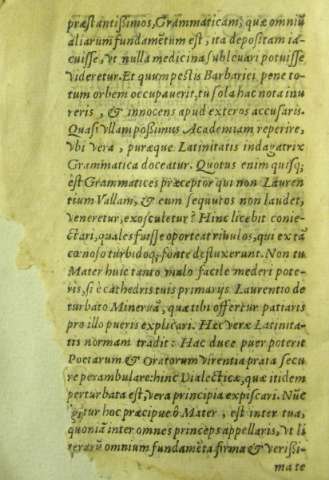 præstantißimos, Grammaticam, quæ omniũ
aliarum fundamẽtum est, ita depositam ia-
cuisse, vt nulla medicina subleuari potuisse
videretur. Et quum pestis Barbariei pene to-
tum orbem occupauerit, tu sola hac nota inu
reris, & innocens apud exteros accusaris.
Quasi vllam poßimus Academiam reperire,
vbi vera, puræque Latinitatis indagatrix
Grammatica doceatur. Quotus enim quisq;
est Grammatices præceptor qui non Lauren
tium Vallam, & eum sequutos non laudet,
veneretur, exosculetur? Hinc licebit conie-
ctari, quales fuisse oporteat riuulos, qui ex tã
cœnoso turbidoq; fonte defluxerunt. Non tu
Mater huic tanto malo facile mederi pote-
ris, si è cathedris tuis primarys Laurentio de
turbato Mineruã, quæ tibi offertur patiaris
pro illo pueris explicari. Hec veræ Latinita-
tis normam tradit: Hac duce puer poterit
Poetarum & Oratorum virentia prata secu
re perambulare: hinc Dialecticæ, quæ itidem
perturbata est, vera principia expiscari. Nũc
igitur hoc præcipue ô Mater, est inter tua,
quoniã inter omnes princeps appellaris, vt li
terarũ omnium fundamẽta firma & verißi-
ma te